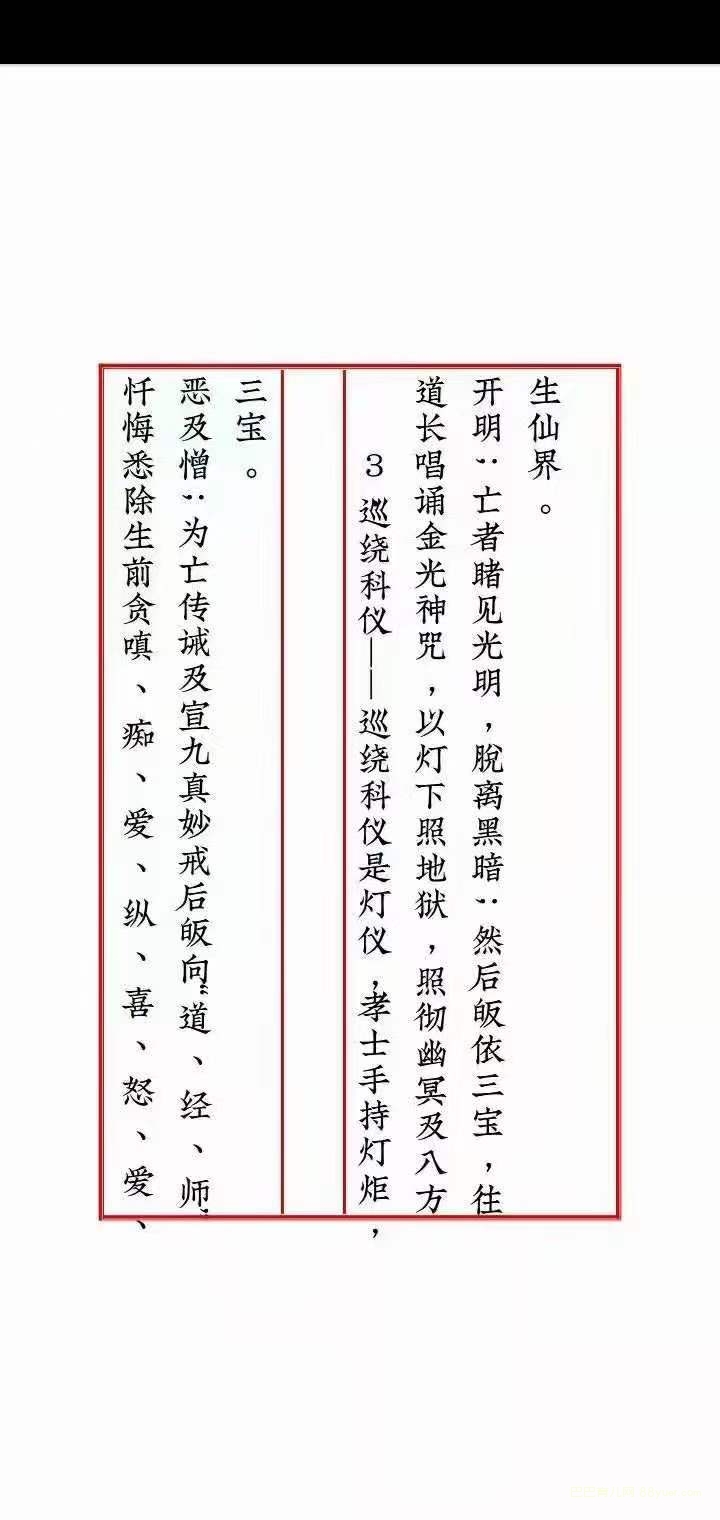 忏悔悉除生前贪嗔、痴、爱、纵、喜、怒、爱、
恶及憎；为亡传诫及宣九真妙戒后皈向“道、经、师”
三宝。
3 巡绕科仪——巡绕科仪是灯仪，孝士手持灯炬，
道长唱诵金光神咒，以灯下照地狱，照彻幽冥及八方
开明；亡者睹见光明，脱离黑暗；然后皈依三宝，往
生仙界。